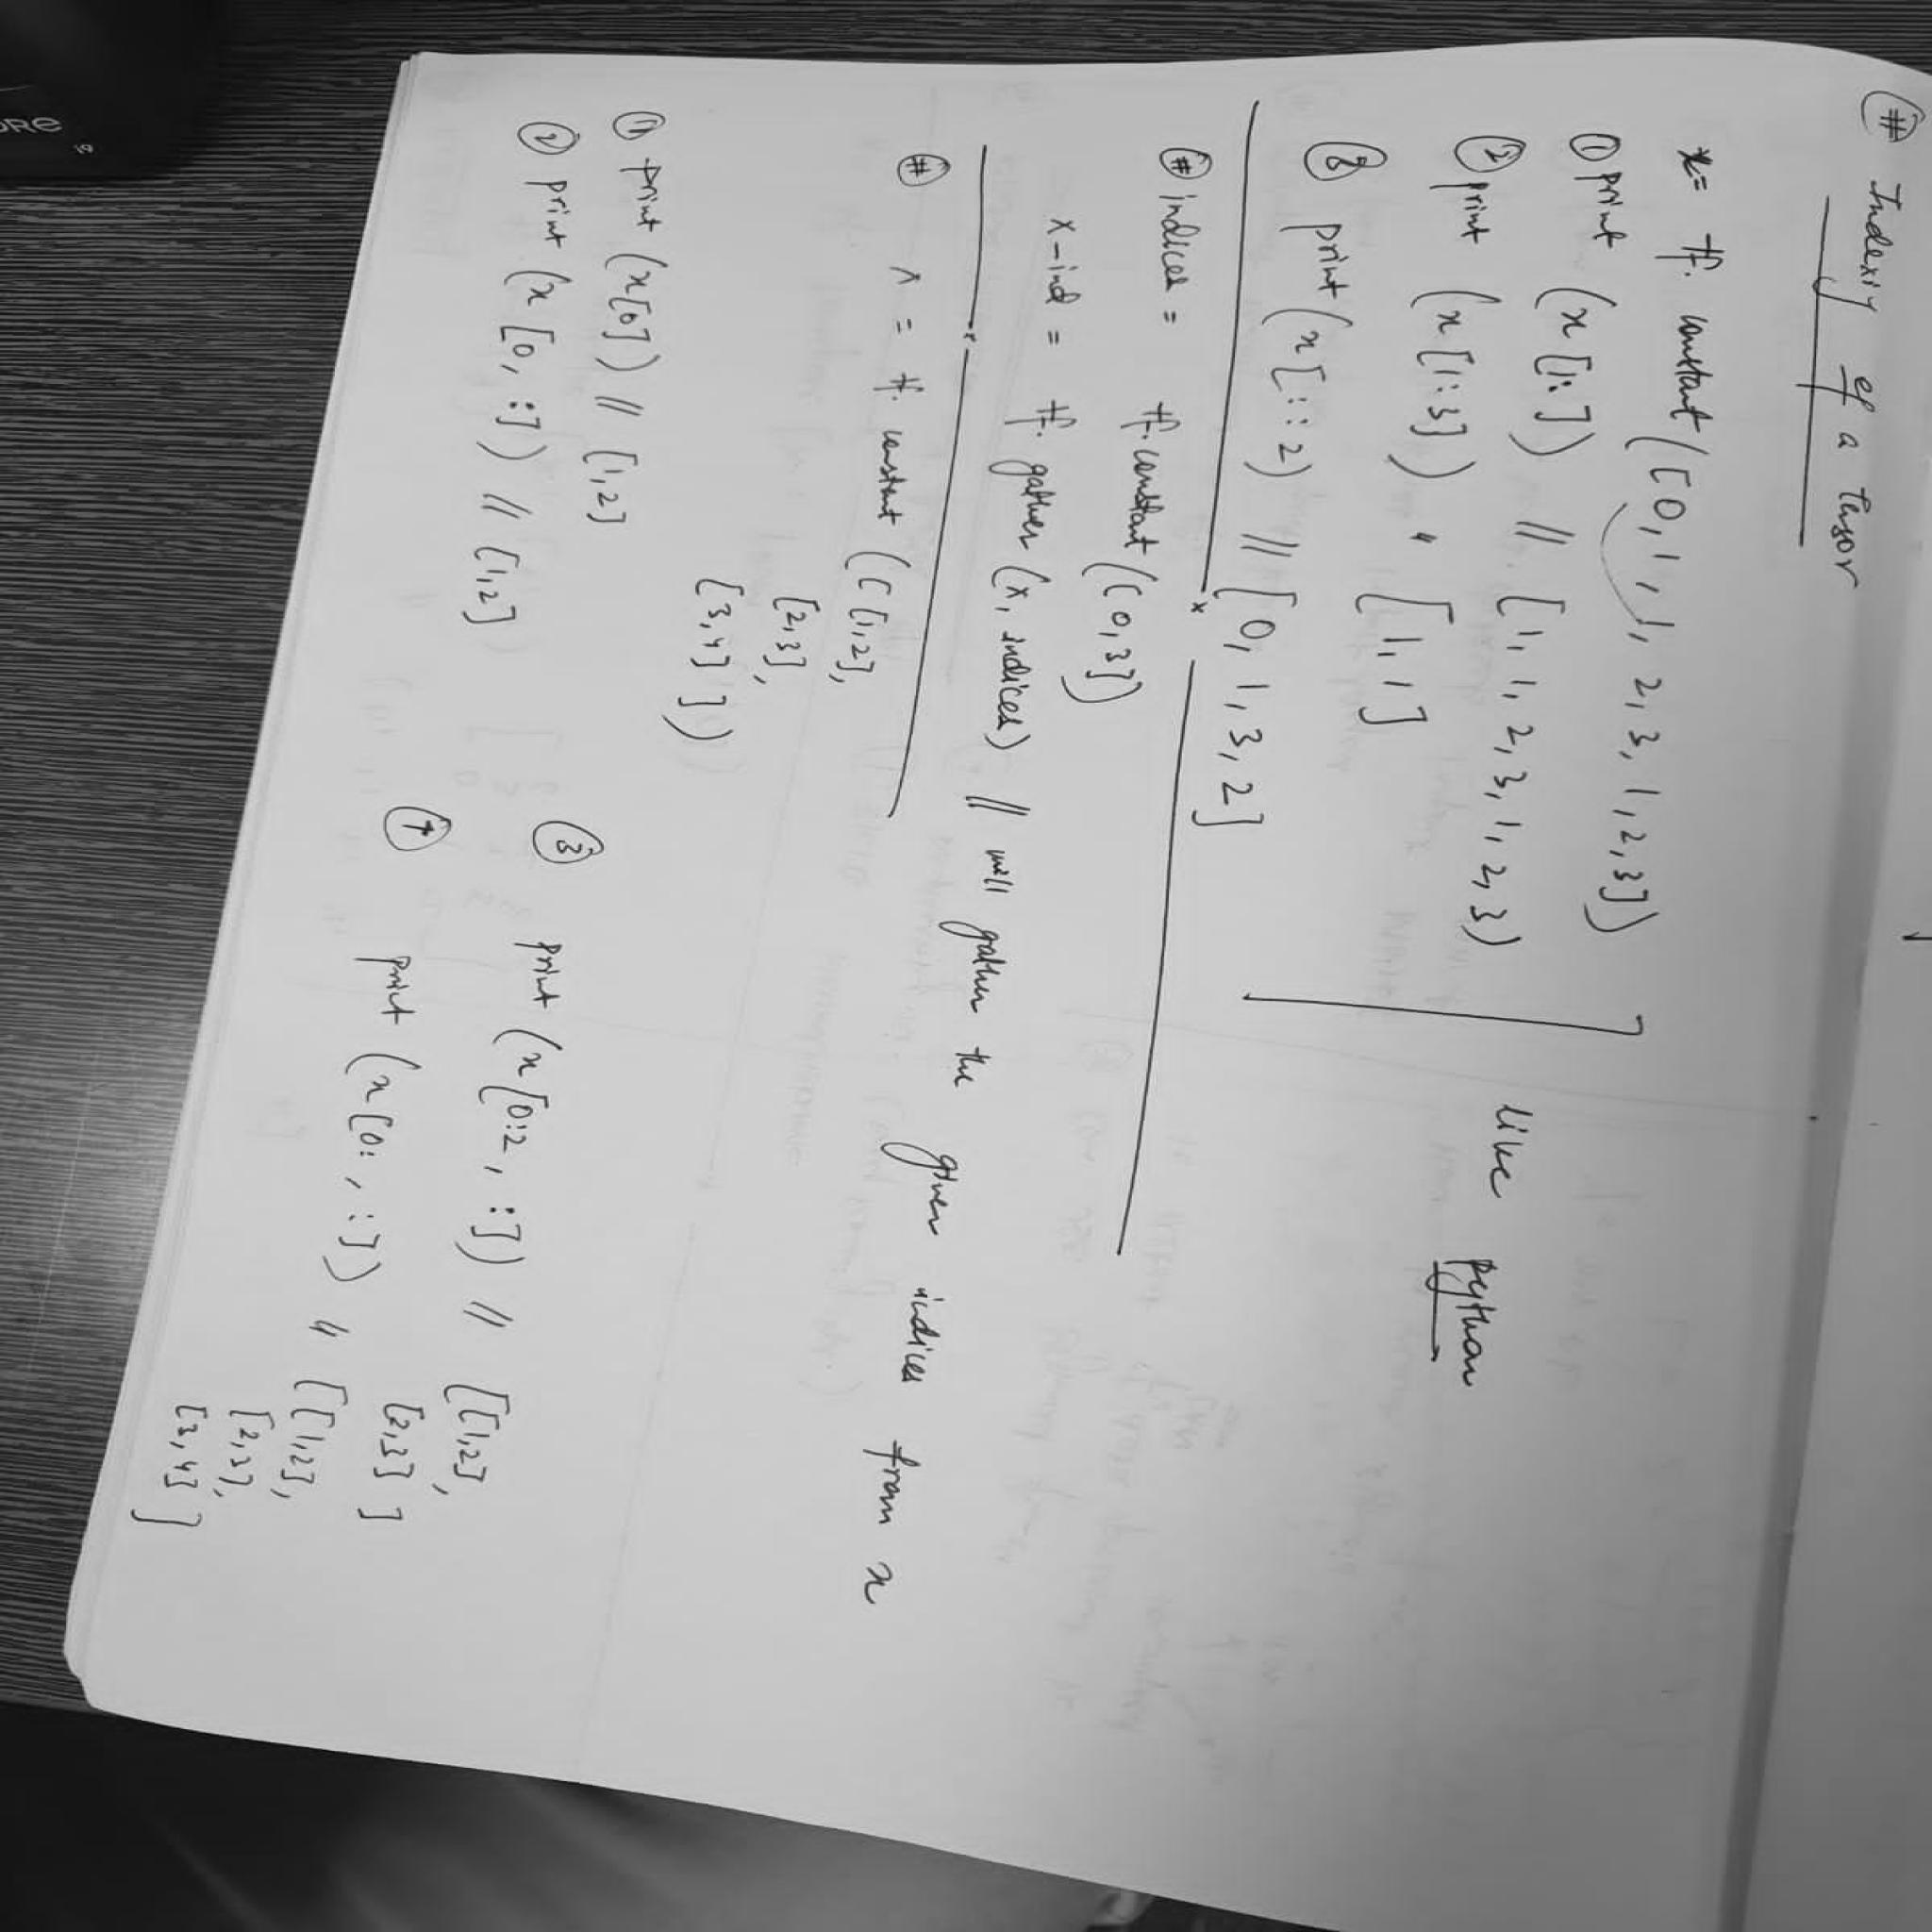 # Indexing of a tensor
x = tf. constant ([0, 1, 1, 2, 3, 1, 2, 3])
① print (x[1:]) // [1, 1, 2, 3, 1, 2, 3)
② print (x[1:3]) " [1, 1]
③ print (x[::2) // [0, 1, 3, 2]
like python
# indices = tf. constant ([0, 3])
x-ind = tf. gather (x, indices) // will gather the given indices from x
# x = tf. constant ([[1,2],
[2,3],
[3,4] ])
① print (x[0]) // [1,2]
② print (x[0, :]) // [1,2]
③ print (x[0:2, :]) // [[1,2],
[2,3] ]
④ print (x[0:, :]) // [[1,2],
[2,3],
[3,4] ]